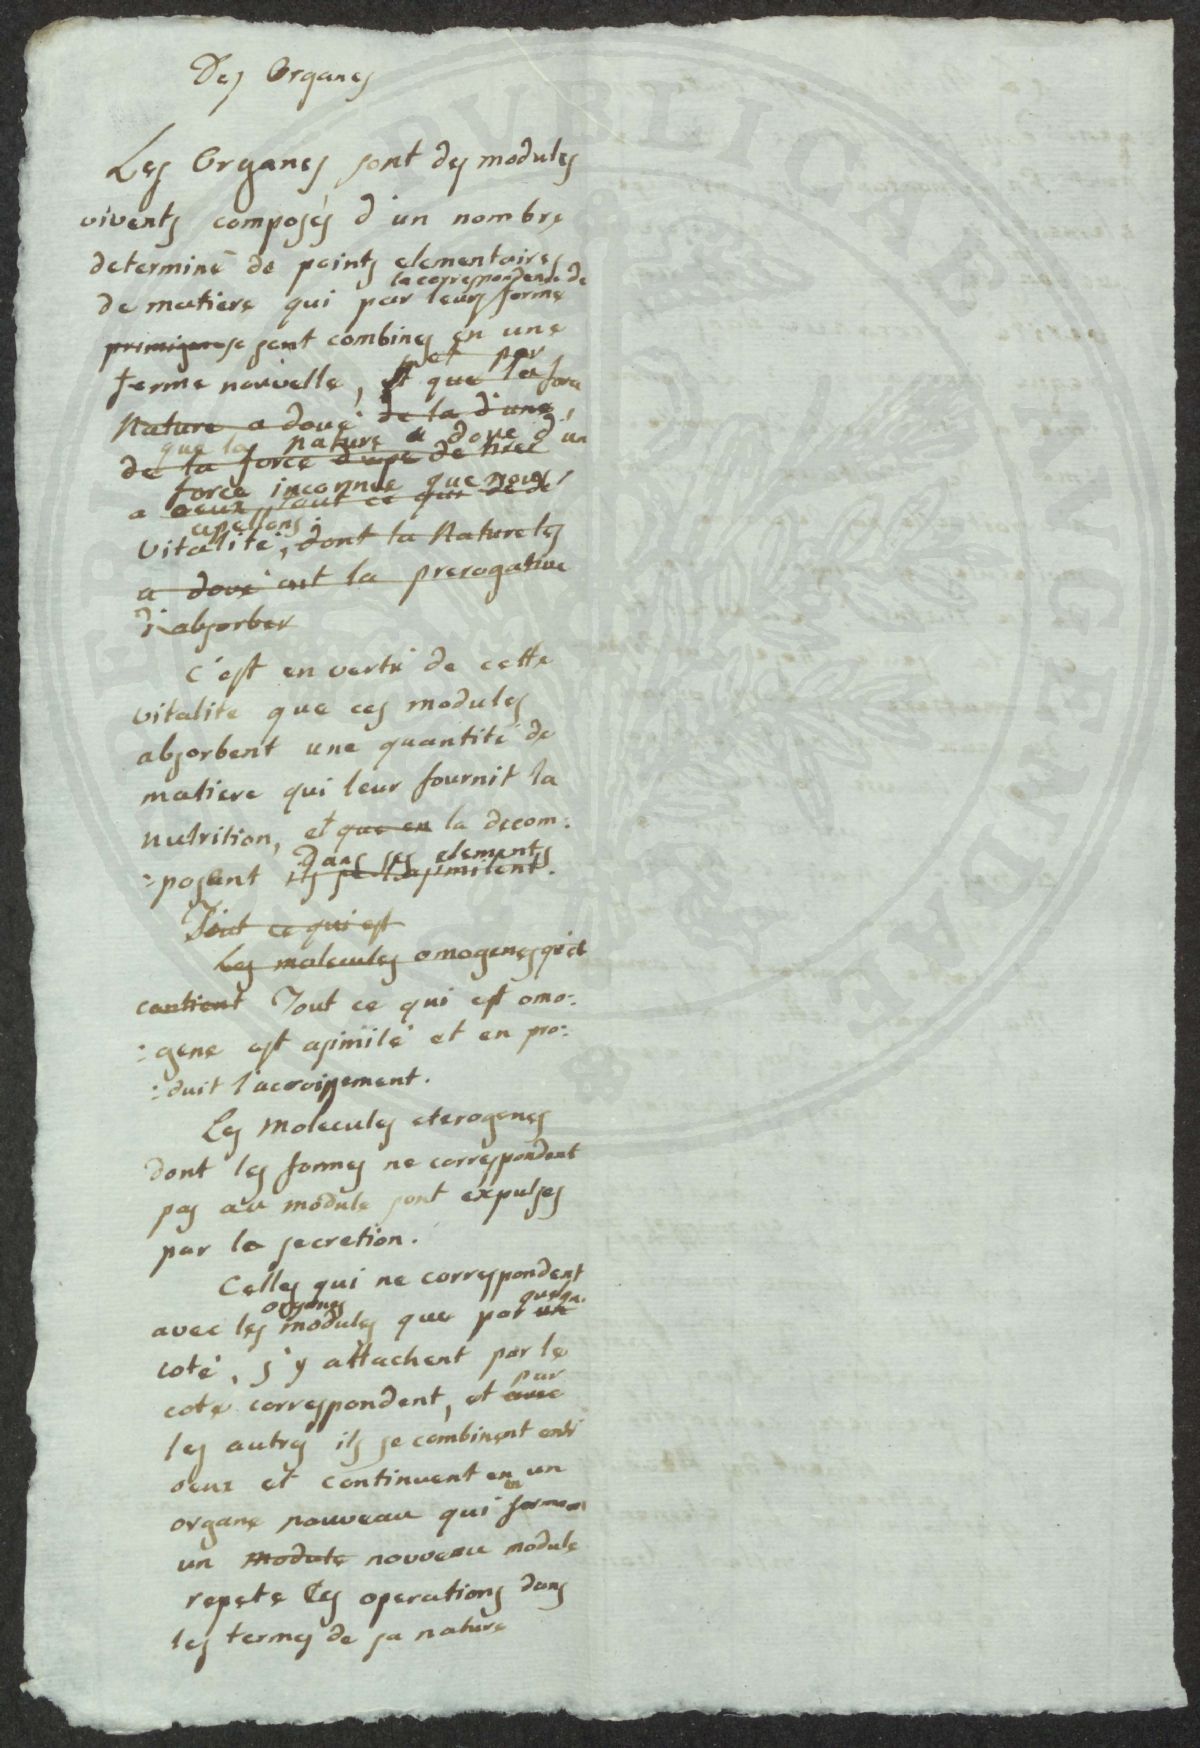 Des Organes
Les Organes sont des modules
vivents composés d'un nombre
determiné de points elementaires
la correspondence de
de matiere qui par leurs forme
primigene se sont combines en une
et par
forme nouvelle, et que la force
Nature a doué de la d'une
que la nature a doué d'un
de la force
force inconnue que nous
a ceux tout ce qui
apellons
vitalité, dont la Nature les
a doué ont la prerogative
d'absorber
C'est en vertu de cette
vitalité que ces modules
absorbent une quantité de
matiere qui leur fournit la
nutrition, et que en la decom:
dans ses elements
:posant ils se l'asimilent.
Tout ce qui est
Les molecules omogenes qu'il
contient Tout ce qui est omo:
:gene est asimilé et en pro:
:duit l'acroissement.
Les Molecules eterogenes
dont les formes ne correspondent
pas au module sont expulses
par la secretion.
Celles qui ne correspondent
organes quelqu.
avec les modules que par un
coté, s'y attachent par le
par
coté correspondent, et avec
les autres ils se combinent entr
oeux et continuent en un
en
organe nouveau qui formant
un module nouveau module
repete ces operations dans
les termes de sa nature
PUBLICAE